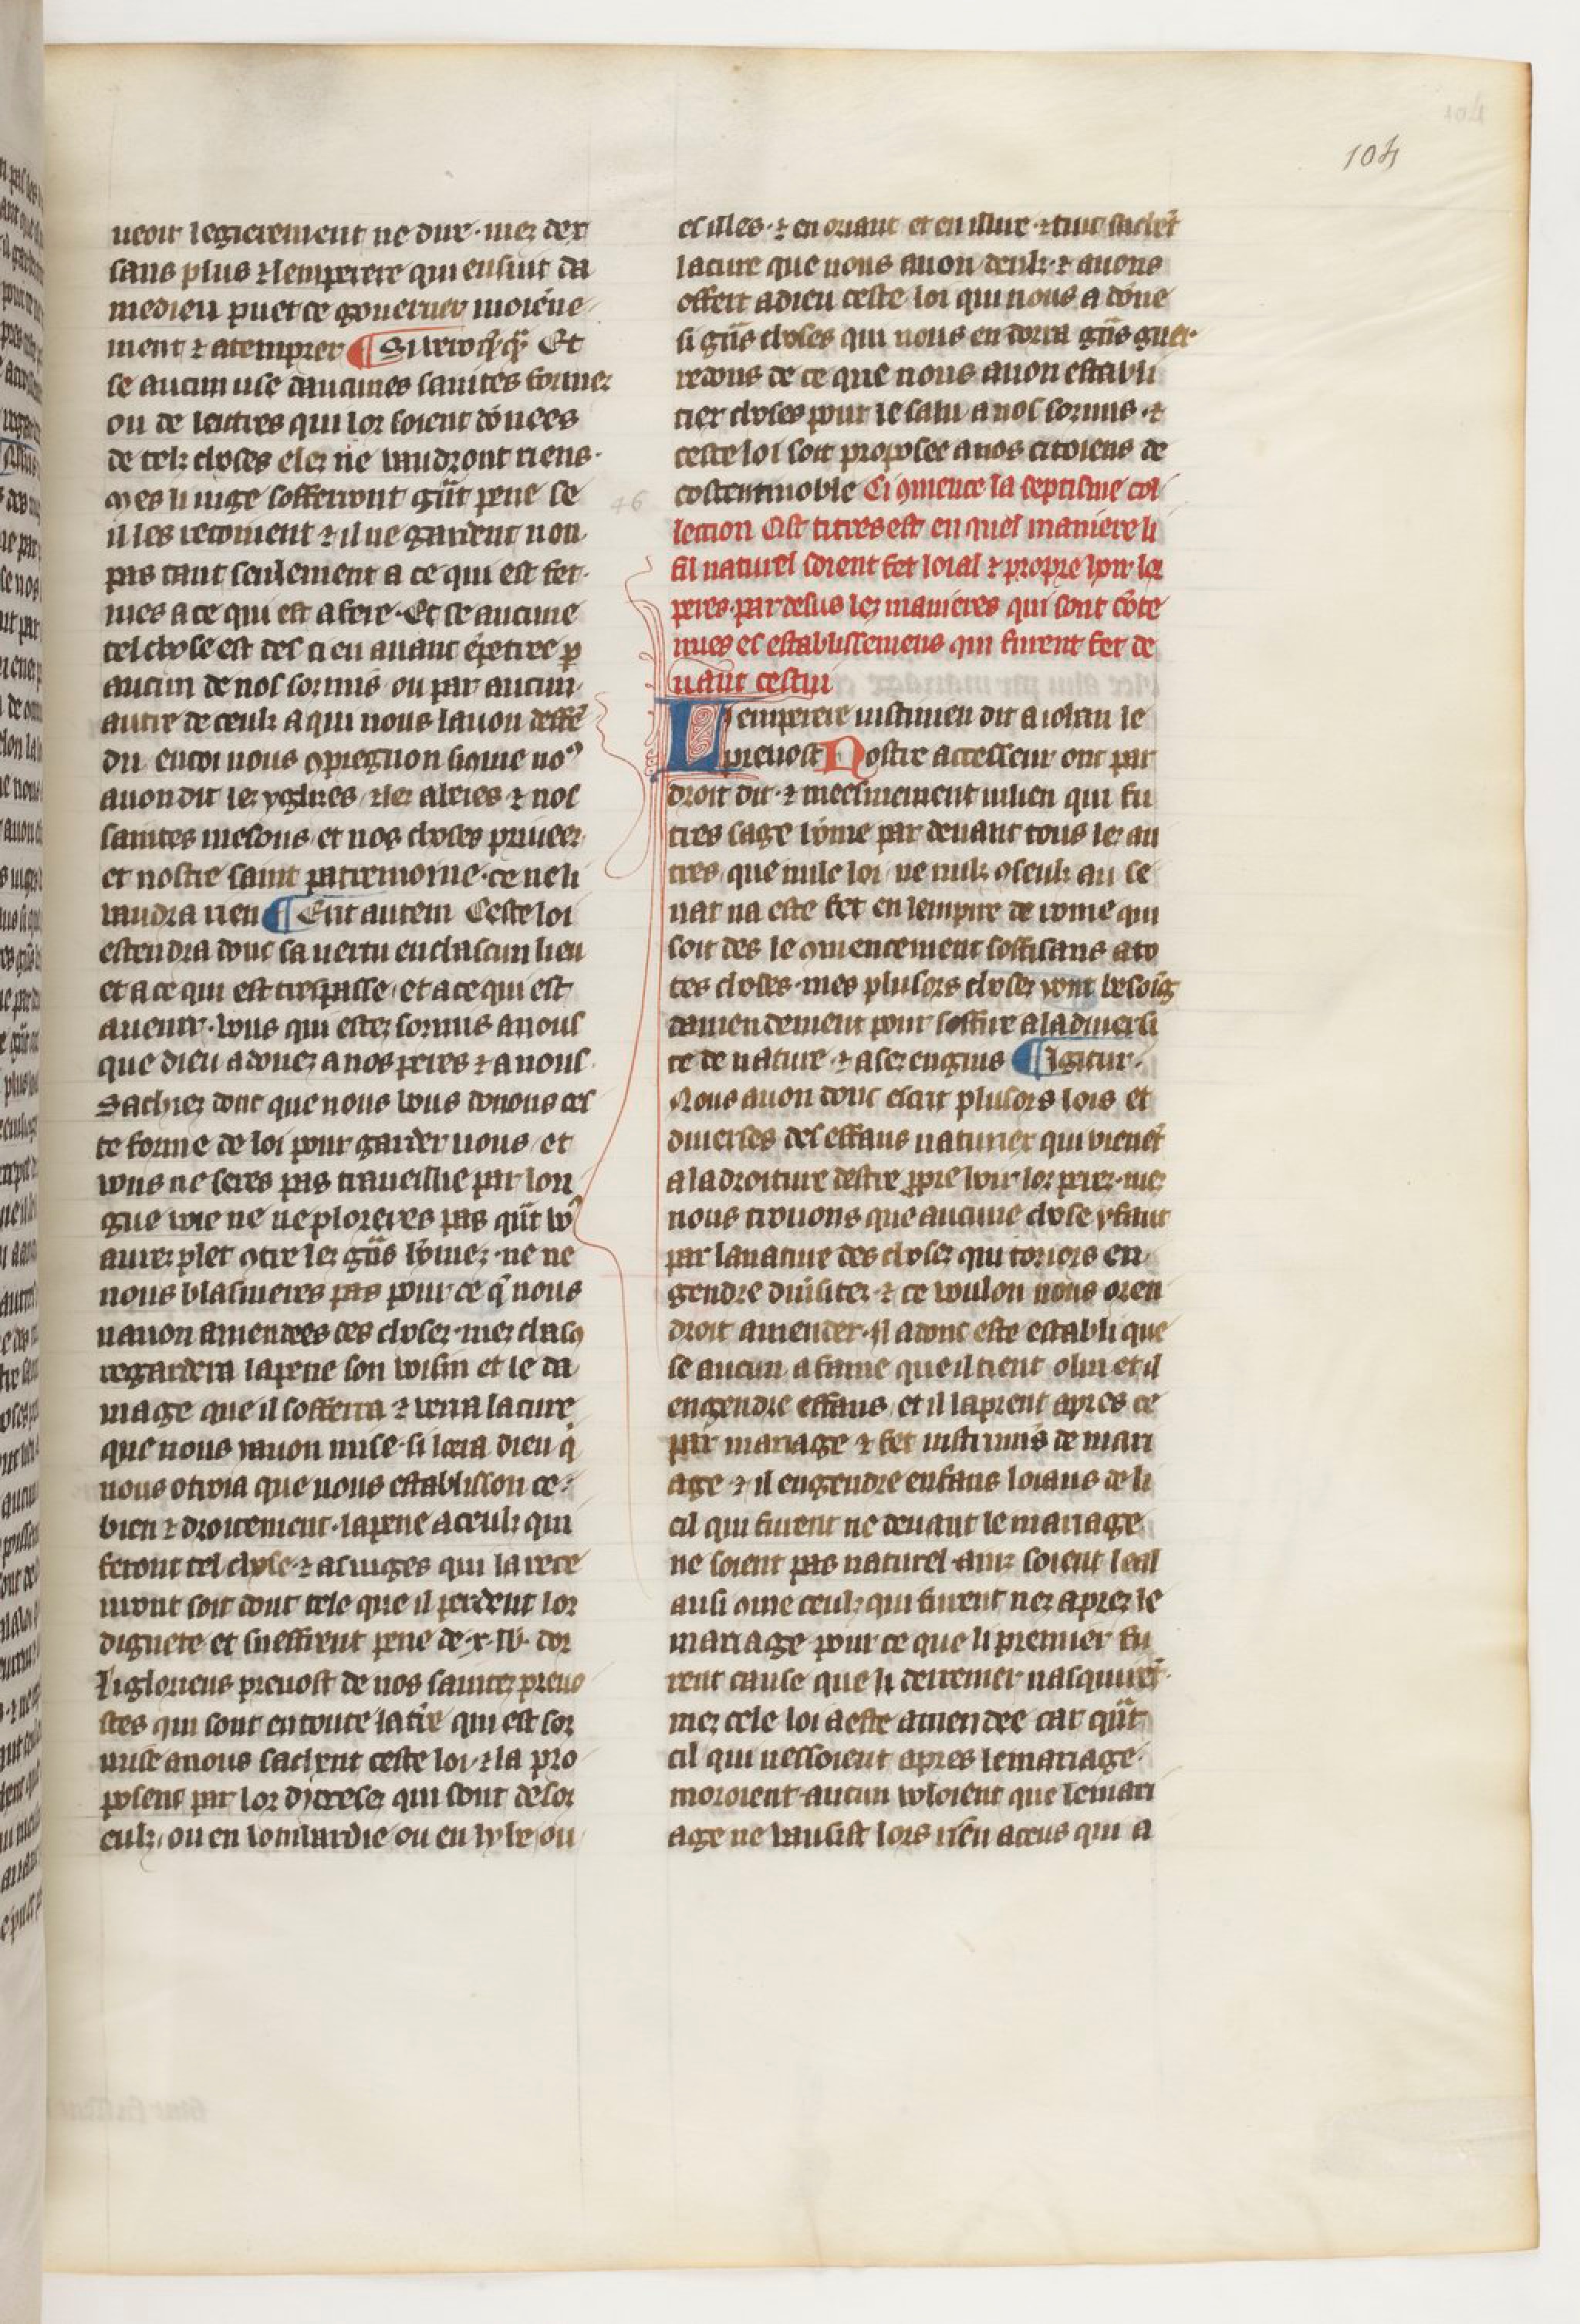 104
ueoir legierement ne dur · mez dex
sans plus ⁊ lemperere qui ensuit da
medieu puet ce gouerner moiẽne
ment ⁊ atemprer ¶ Si uero q̃ Et
se aucun use daucunes saintes formez
ou de lettres qui lor soient dõnees
de telz choses elez ne vaudront riens ·
mes li iuge sofferront grãt peine se
il les recoiuent ⁊ il ne gardent non
pas tant seulement a ce qui est fet ·
mes a ce qui est a fere · Et se aucune
tel chose est des ci en auant ẽpetree ꝑ
aucun de nos sormis ou par aucun
autre de ceulz a qui nous lauon deffẽ
du en coi nous ꝯpregnon si ꝯme noꝰ
auon dit lez yglises ⁊ lez abeies ⁊ nos
saintes mesons et nos choses priueez
et nostre saint patremoine · ce ne li
vaudra rien ¶ Erit autem Ceste loi
estendra donc sa uertu en chascun lieu
et a ce qui est trespasse et a ce qui est
auenir · vous qui estez sormis a nous
que dieu a donez a nos peres ⁊ a nous ·
Sachiez donc que nous vous donons ces
te forme de loi pour garder uous et
vous ne seres pas traueillie par lon
gue voie ne ne ploreres pas q̃nt vꝰ
aurez plet ꝯtre lez grãs hõmez · ne ne
nous blasmeres pas pour ce q̃ nous
nauon amendees ces chosez · mez chascꝯ
regardera la peine son voisin et le da
mage que il sofferra ⁊ verra la cure
que nous yauon mise · si loera dieu q̃
nous otroia que nous establisson ce ·
bien ⁊ droitement · la peine a ceulz qui
feront tel chose · ⁊ as iuges qui la rece
uront soit donc tele que il perdent lor
dignete et sueffrent peine de · x · lb · dor
Li glorieus preuost de nos saintez preuo
stes qui sont en toute la tr̃e qui est soz
mise a nous sachent ceste loi · ⁊ la pro
posent par lor dyocesez qui sont desoz
eulz · ou en lombardie ou en lybe ou
es illes · ⁊ en oriant et en illire · ⁊ tuit sachẽt
la cure que nous auon deulz · ⁊ auons
offert a dieu ceste loi qui nous a dõne
si grãs choses qui nous en dorra grãs guer ·
redons de ce que nous auon establi
tiex choses pour le salu a nos sormis · ⁊
ceste loi soit proposee a nos citoiens de
costentinoble Ci ꝯmence la septisme col
lection Cist titres est en quel maniere li
fil naturel soient fet loial ⁊ propre hoir lor
peres · par desus lez manieres qui sont cõte
nues es establissemens qui furent fet de
uãnt cestui
Lemperere iustinien dit a iohan le
preuost Nostre accesseur ont par
droit dit · ⁊ meesmement iulien qui fu
tres sage hõme par deuant tous lez au
tres que nule loi ne nulz ꝯseulz au se
nat na este fet en lempire de rome qui
soit des le ꝯmencement soffisans a to
tes choses · mes plusors chosez yont besoĩg
damendement pour soffire a la diuersi
te de nature ⁊ a sez engins ¶ Igitur ·
Nous auon donc escrit plusors lois et
diuerses des effans naturiex qui vienẽt
a la droiture destre ꝓpre hoir lor perez · mez
nous trouons que aucune chose y faut
par la nature des chosez qui toriors en
gendre diũsitez · ⁊ ce voulon nous oren
droit amender · Il a donc este establi que
se aucun a fame que il tient o lui et il
engendre effans et il la prent apres ce
par mariage ⁊ fet instrumẽs de mari
age ⁊ il engendre enfans loiaus de li
cil qui furent ne deuant le mariage
ne soient pas naturel · ainz soient leal
ausi ꝯme ceulz qui furent nez aprez le
mariage · pour ce que li premier fu
rent cause que li derrenier nasquirẽt ·
mez cele loi a este amendee car q̃nt
cil qui nessoient apres le mariage ·
moroient · aucun voloient que le mari
age ne vausist lors riẽn a ceus qui a